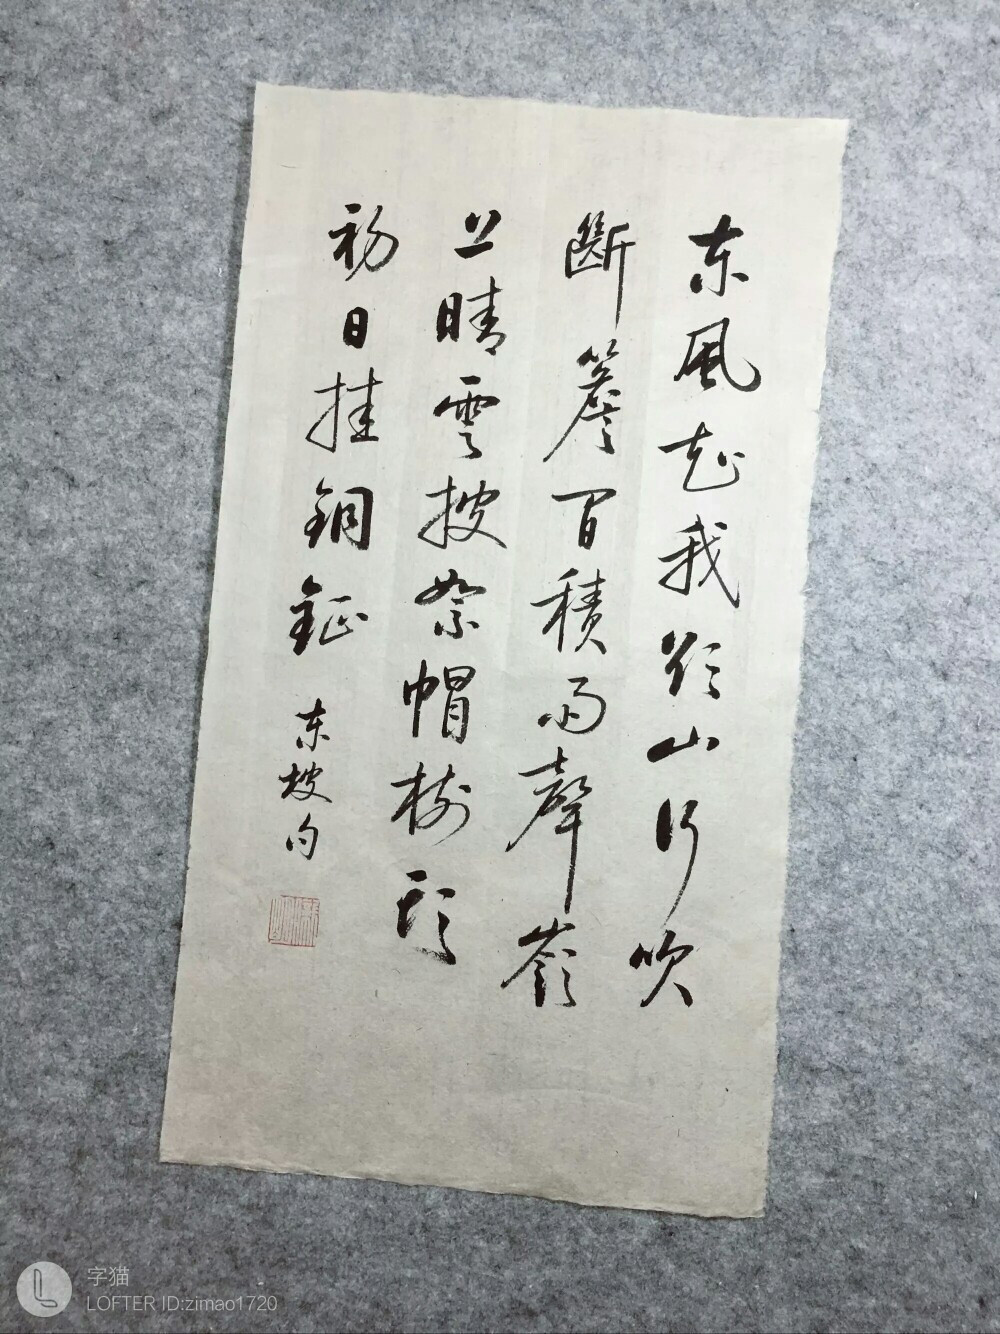 东風知我欲山行吹
斷簷間積雨聲嶺
上晴雲披絮帽樹頭
初日挂銅鉦 东坡句
字猫
LOFTER ID:zimao1720